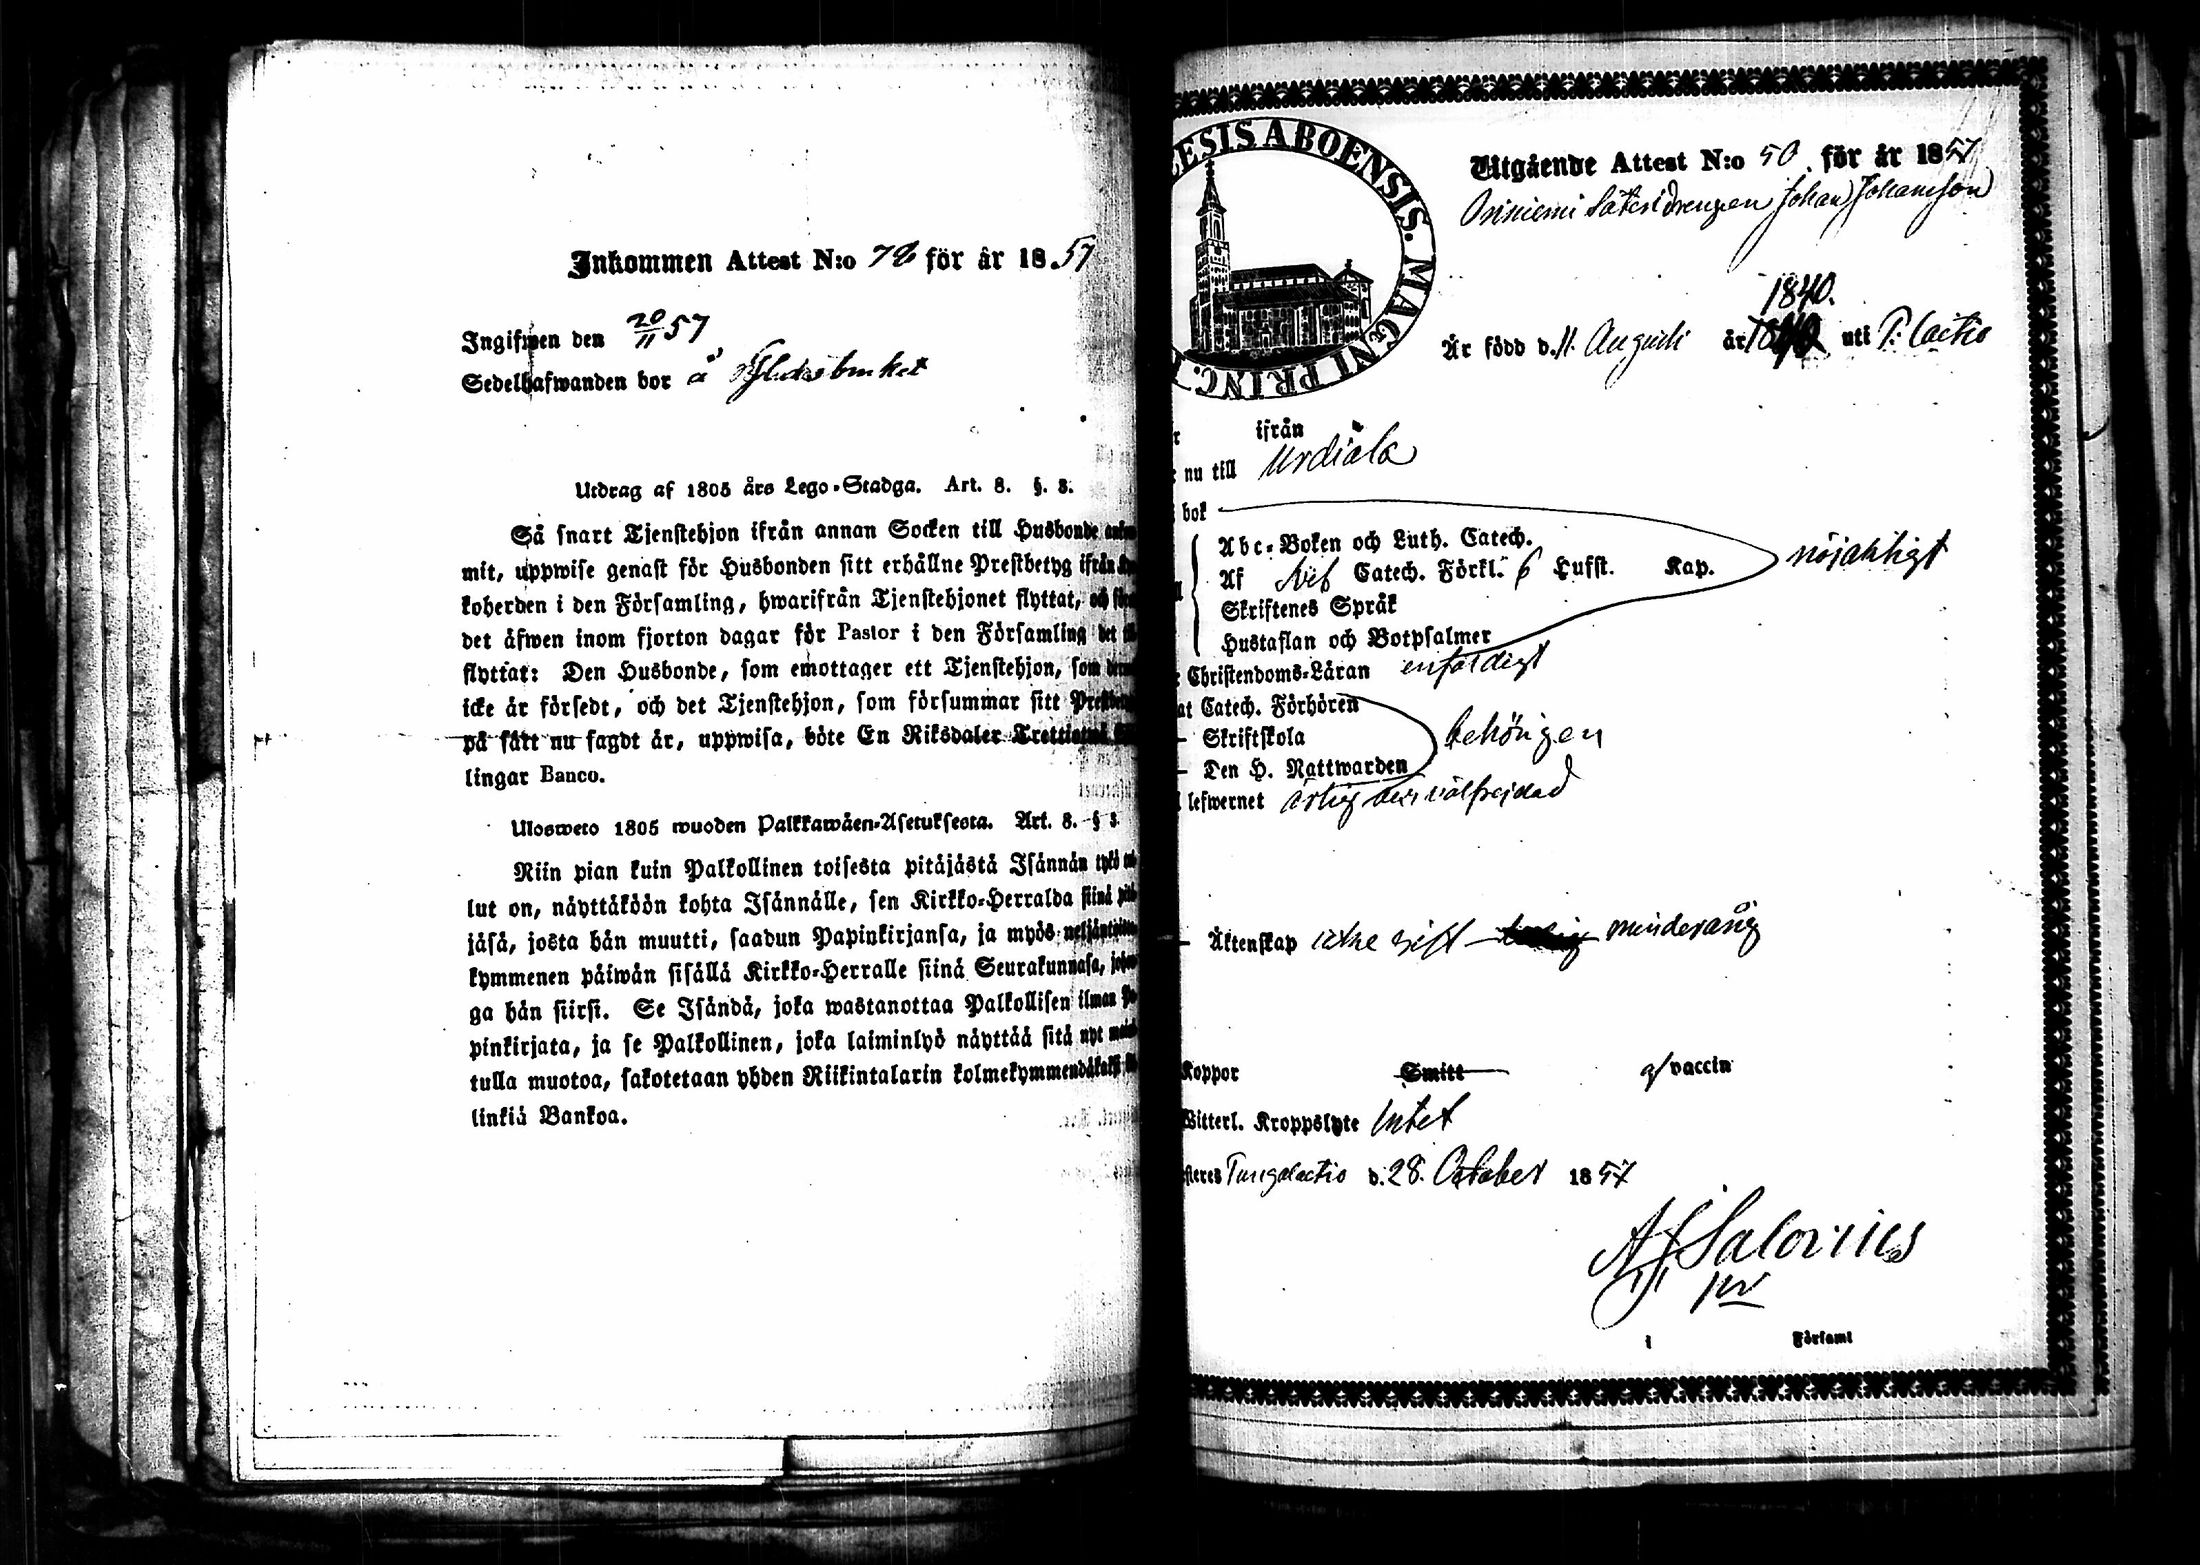 Inkommen Attest N:o 78 för år 1857
Ingifwen den 20/11 57
Sedelhafwanden bor å
Utdrag af 1805 års Lego-Stadga. Art. 8. §. 8.
Så snart Tjenstehjon ifrån annan Socken till Husbonde
mit, uppwise genast för Husbonden sitt erhållne Prestbetyg ifrån
koherden i den Församling, hwarifrån Tjenstehjonet flyttat, och
det äfwen inom fjorton dagar för Pastor i den Församling det
flyttat: Den Husbonde, som emottager ett Tjenstehjon, som
icke är försedt, och det Tjenstehjon, som försummar sitt
på sätt nu sagdt är, uppwisa, böte En Riksdaler
lingar Banco.
Ulosweto 1805 wuoden Palkkawäen-Asetuksesta. Art. 8. §
Niin pian kuin Palkollinen toisesta pitäjästä Isännän työ
lut on, näyttäköön kohta Isännälle, sen Kirkko-Herralda siinä
jäsä, josta hän muutti, saadun Papinkirjansa, ja myös
kymmenen päiwän sisällä Kirkko-Herralle siinä Seurakunnasa,
ga hän siirsi. Se Isändä, joka wastanottaa Palkollisen ilman
pinkirjata, ja se Palkollinen, joka laiminlyö näyttää sitä nyt
tulla muotoa, sakotetaan yhden Riikintalarin
linkiä Bankoa.
ESIS ABOENSIS. MAGNI PRINC.
Utgående Attest N:o 50 för år 1857
Säteridrengen Johan Johansson
1840.
Är född d. 11. Augusti år uti P: Lactio
ifrån
nu till Urdiala
bok
Abc-Boken och Luth. Catech.
Af Catech. Förkl. 6 Hufst. Kap. nöjaktigt
Skriftenes Språk
Hustaflan och Botpsalmer
Christendoms-Läran enfaldigt
Catech. Förhören
Skriftskola behörigen
Den H. Nattwarden
lefwernet ärlig och välfrejdad
Äktenskap icke gift minderårig
Koppor Smitt g/vaccin
Witterl. Kroppslyte intet
d. 28. October 1857
Församl